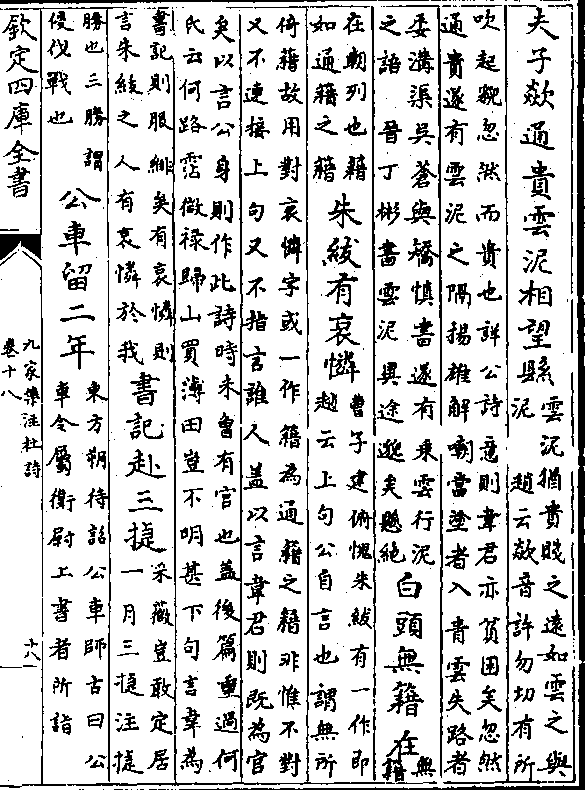 夫子欻通貴雲泥相望縣
雲泥猶貴賤之遠如雲之與
泥 趙云欻音許勿切有所
吹起貌忽然而貴也詳公詩意則韋君亦貧困矣忽然
通貴遂有雲泥之隔揚雄解嘲當塗者入青雲失路者
委溝渠吳蒼與矯慎書遂有乘雲行泥
之語 晉丁彬書雲泥異途邈矣懸絶
白頭無籍在
無
籍
在朝列也籍
如通籍之籍
朱紱有哀憐
曹子建俯愧朱紱有一作即
趙云上句公自言也謂無所
倚籍故用對哀憐字或一作籍為通籍之籍非惟不對
又不連接上句又不指言誰人蓋以言韋君則既為官
矣以言公身則作此詩時未曾有官也蓋後篇重過何
氏云何路霑微禄歸山買薄田豈不明甚下句言韋為
書記則服緋矣有哀憐則
言朱紱之人有哀憐於我
書記赴三捷
采薇豈敢定居
一月三捷注捷
勝也三勝謂
侵伐戰也
公車留二年
東方朔待詔公車師古曰公
車令屬衛尉上書者所詣
欽定四庫全書
九家集注杜詩
卷十八
十八